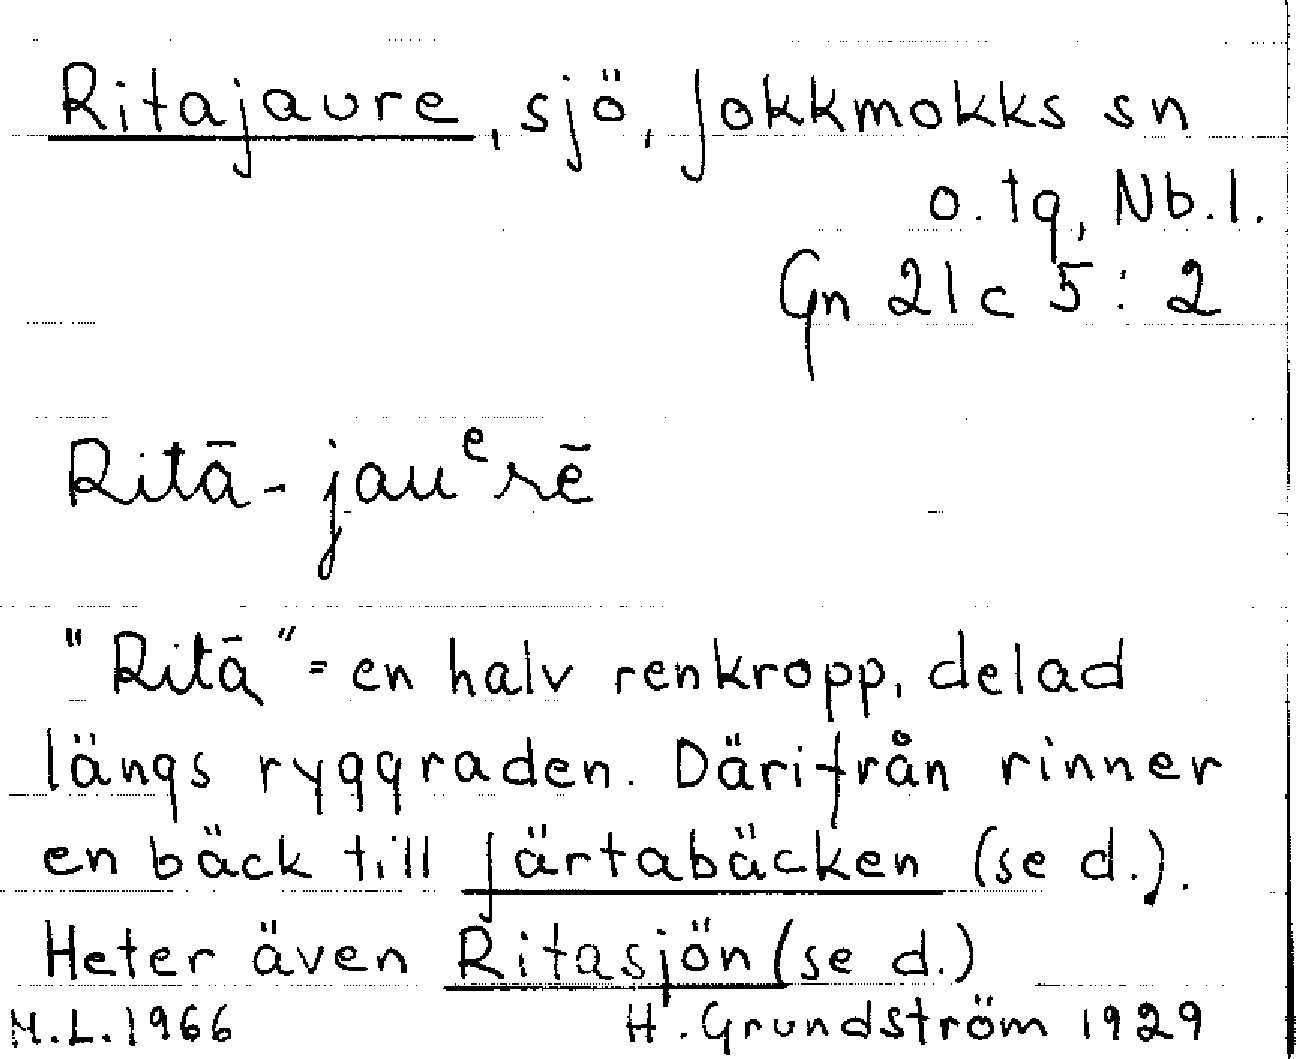 Ritajaure, sjö, Jokkmokks sn
o. tg, Nb. l.
Gn 21c 5:2
Ritā-jauᵉrē
"Ritā" = en halv renkropp, delad
längs ryggraden. Därifrån rinner
en bäck till Järtabäcken (se d.).
Heter även Ritasjön (se d.)
M.L. 1966 H. Grundström 1929